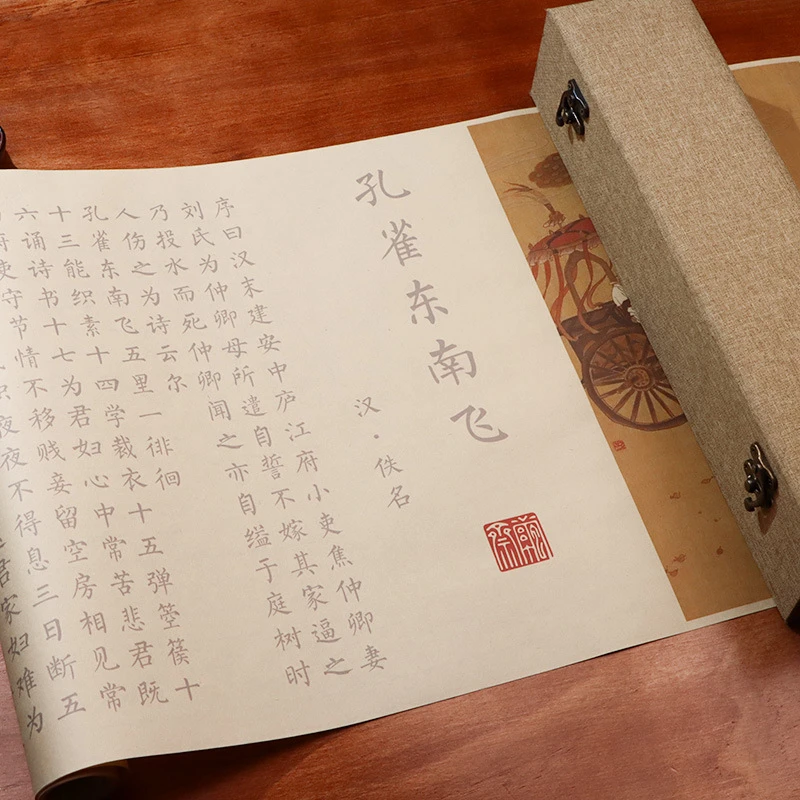 孔雀东南飞
汉·佚名
序曰汉末建安中庐江府小吏焦仲卿妻
刘氏为仲卿母所遣自誓不嫁其家逼之
乃投水而死仲卿闻之亦自缢于庭树时
人伤之为诗云尔
孔雀东南飞五里一徘徊
十三能织素十四学裁衣十五弹箜篌十
六诵诗书十七为君妇心中常苦悲君既
府吏守节情不移贱妾留空房相见常
织夜夜不得息三日断五
君家妇难为